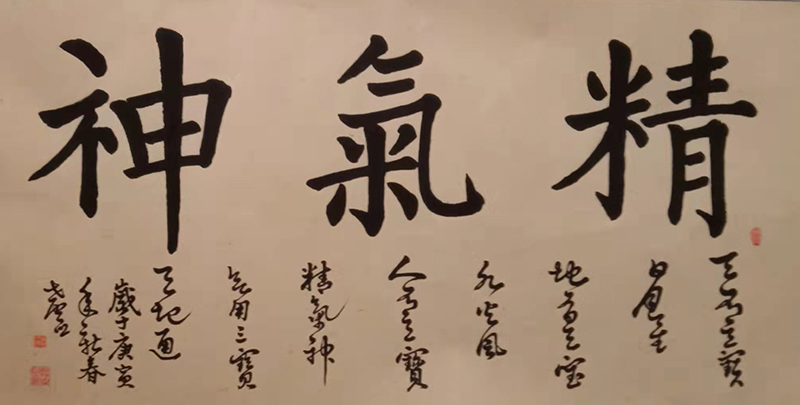 精氣神
天有三寶
日月星
地有三寶
水火風
人有三寶
精氣神
善用三寶
天地通
歲于庚寅
年新春